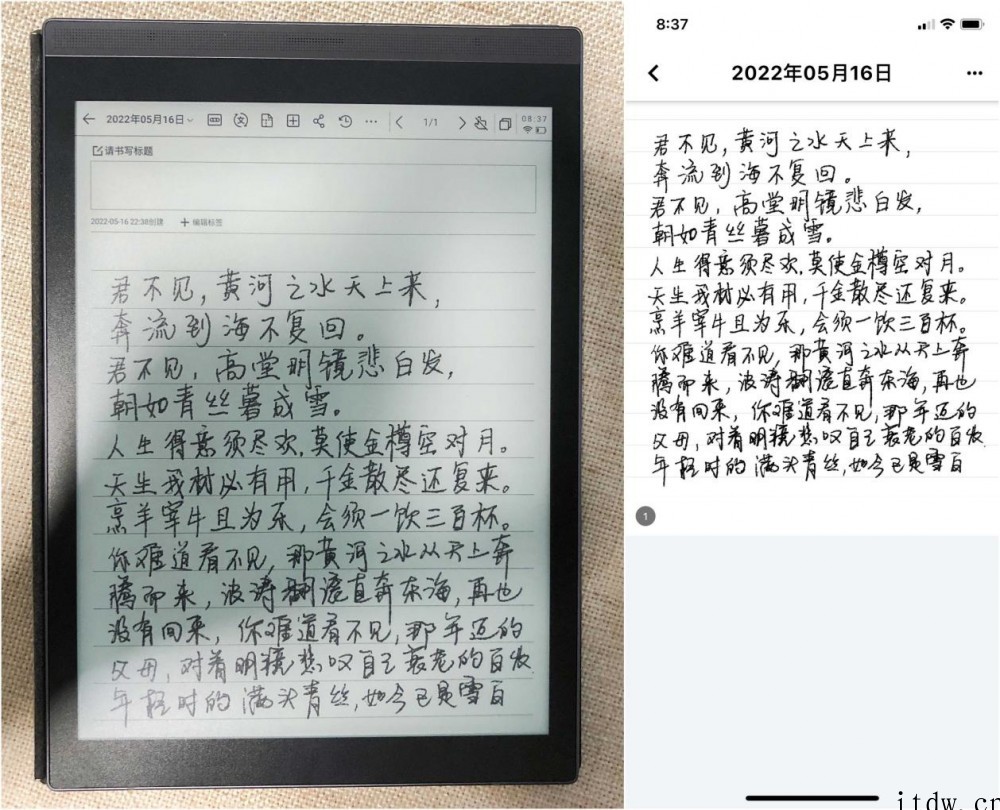 2022年05月16日
1/1
08:37
请书写标题
2022-05-16 22:38创建
编辑标签
君不见,黄河之水天上来,
奔流到海不复回。
君不见,高堂明镜悲白发,
朝如青丝暮成雪。
人生得意须尽欢,莫使金樽空对月。
天生我材必有用,千金散尽还复来。
烹羊宰牛且为乐,会须一饮三百杯。
你难道看不见,那黄河之水从天上奔
腾而来,波涛翻滚直奔东海,再也
没有回来,你难道看不见,那年迈的
父母,对着明镜悲叹自己衰老的白发
年轻时的满头青丝,如今已是雪白
8:37
2022年05月16日
君不见,黄河之水天上来,
奔流到海不复回。
君不见,高堂明镜悲白发,
朝如青丝暮成雪。
人生得意须尽欢,莫使金樽空对月。
天生我材必有用,千金散尽还复来。
烹羊宰牛且为乐,会须一饮三百杯。
你难道看不见,那黄河之水从天上奔
腾而来,波涛翻滚直奔东海,再也
没有回来,你难道看不见,那年迈的
父母,对着明镜悲叹自己衰老的白发
年轻时的满头青丝,如今已是雪白
1
itdw.cn